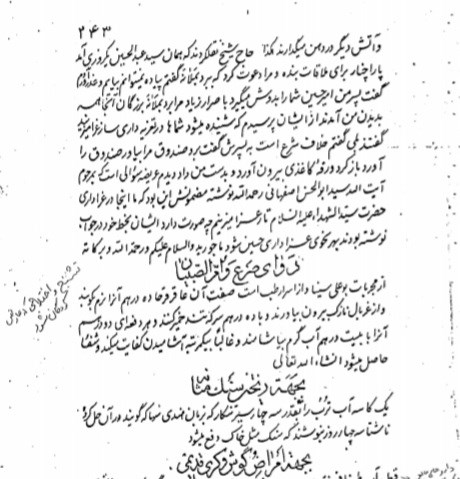 ۲۴۳
و آتش دیگر در دهن میگذارند هکذا حاج شیخ نقلکرد که همان سید عبدالحسین یکروزی آمد
برای ملاقات بنده و مرا دعوت کرد که ببرد بمحلهٔ گفتم پیاده نمیتوانم بیایم
گفت پسر من امیر حسین شما را بدوش میگیرد با اصرار زیاد مرا برد بمحلهٔ بزرگان آنجا همه
بدیدن من آمدند از ایشان پرسیدم که شنیده میشود شماها در تعزیه داری ساز میزنید
گفتند بلی گفتم خلاف شرع است به پسرش گفت برو صندوق مرا بیاور صندوق را
آورد باز کرد ورقهٔ کاغذی بیرون آورد و بدست من داد دیدم عریضه سؤالی است که بمرحوم
آیت الله سید ابوالحسن اصفهانی رحمه الله نوشته مضمونش این بود که ما اینجا در عزاداری
حضرت سید الشهداء علیه السلام ساز میزنیم چه صورت دارد ایشان بخط خود در جواب
نوشته بودند بهر نحوی عزاداری حسین شود ماجورید والسلام علیکم و رحمة الله و برکاته
دوای صرع و ام الصبیان
از مجربات بوعلی سینا و از اسرار طب است صفت آن عاقرقرحا ده درهم آنرا نرم بکوبند
و از غربال نازک بیرون بیاورند و با ده درهم سرکه خمیر کنند و هر دفعه ای دو درهم
آنرا با بیست درهم آب گرم بیاشامند و غالباً یکمرتبه آشامیدن کفایت میکند و شفا
حاصل میشود انشاء الله تعالی
بجهة ریختن سنک مثانه
یک کاسه آب ترب را بقدر سه چهار سیر تنکار که بزبان هندی سهاکه گویند در آن حل کرده
ناشتا سه چهار روز بنوشند که سنک مثل خاک دفع میشود
بجهة امراض گوش و کری قدیمی